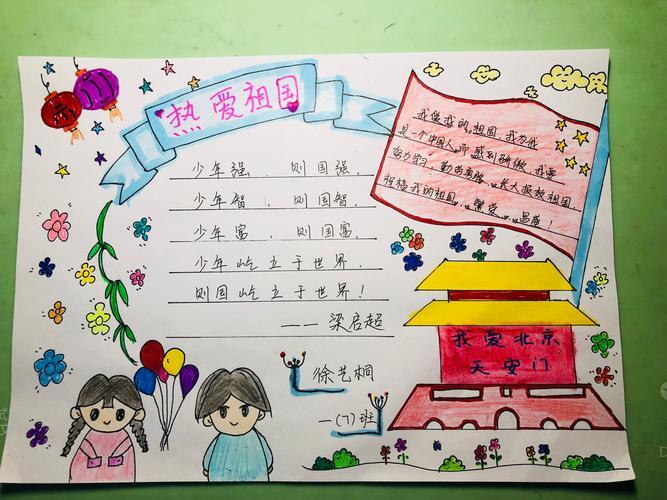 热爱祖国
少年强，则国强，
少年智，则国智，
少年富，则国富，
少年屹立于世界，
则国屹立于世界！
——梁启超
徐艺桐
一(7)班
我爱我的祖国，我为我
是一个中国人而感到骄傲，我要
努力学习，勤劳勇敢，长大报效祖国，
祝福我的祖国，繁荣，昌盛！
我爱北京
天安门